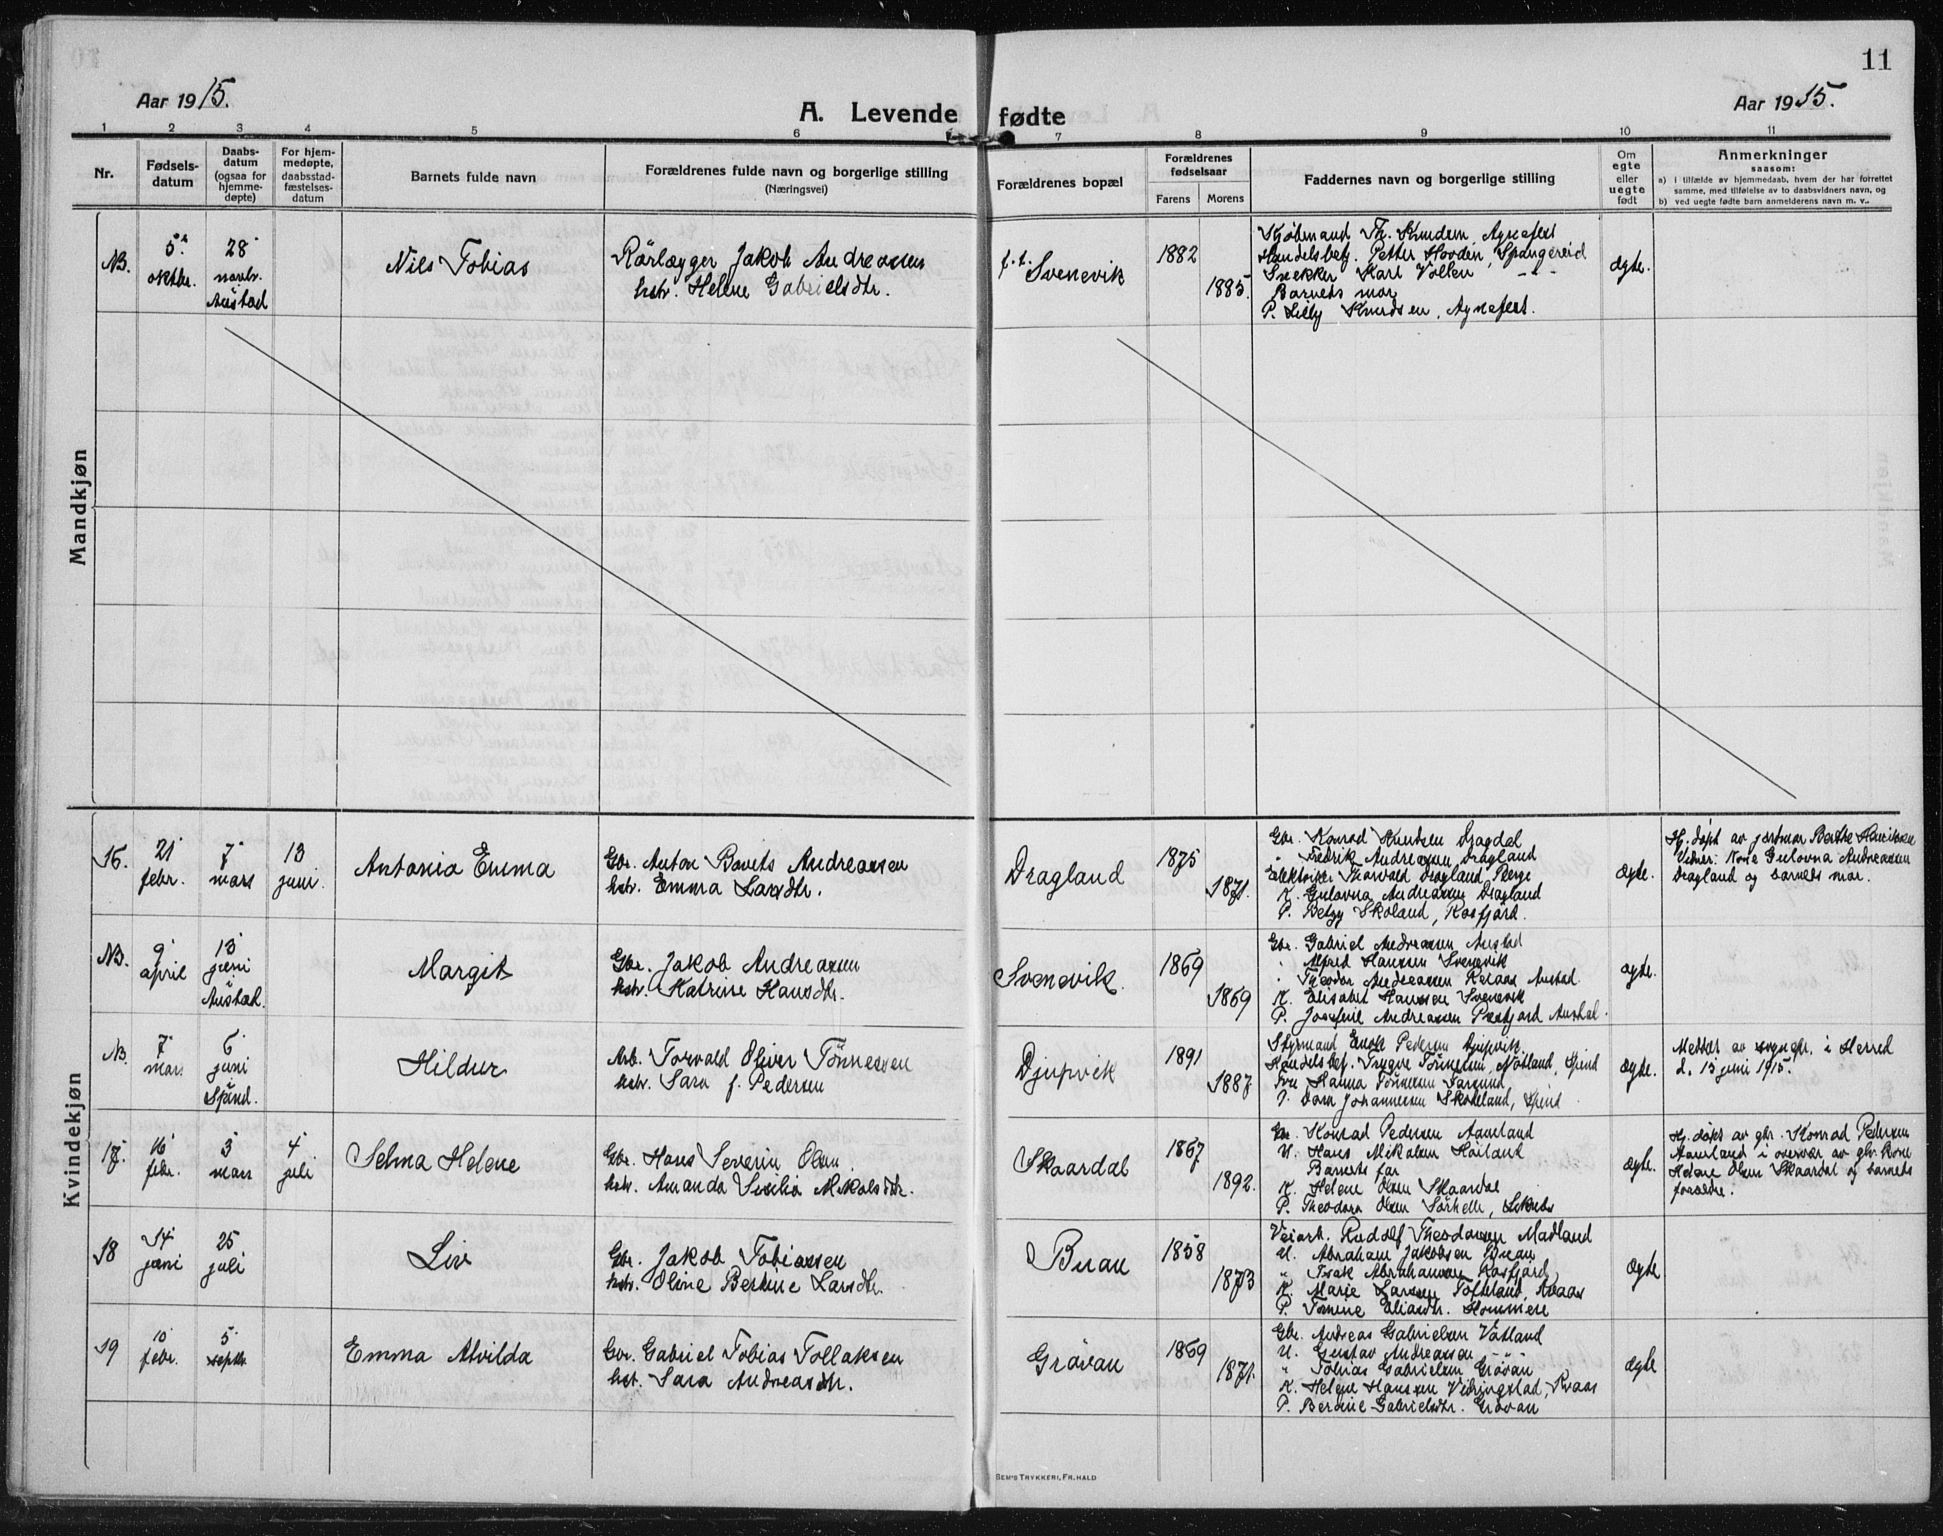 11
Aar 1915.
A. Levende fødte
Aar 1915.
1 2 3 4 5 6 7 8 9 10 11
Nr.
Fødsels-
datum
Daabs-
datum
(ogsaa for
hjemme-
døpte)
For hjem-
medøpte,
daabsstad-
fæstelses-
datum
Barnets fulde navn
Forældrenes fulde navn og borgerlige stilling
(Næringsvei)
Forældrenes bopæl
Forældrenes
fødselsaar
Farens Morens
Faddernes navn og borgerlige stilling
Om
egte
eller
uegte
født
Anmerkninger
saasom:
a) i tilfælde av hjemmedaab, hvem der har forrettet
samme, med tilføielse av to daabsvidners navn, og
b) ved uegte fødte barn anmelderens navn m. v..
Mandkjøn
NB.
5te
oktbr.
28
novbr.
Austad
Nils Tobias
Rörlægger Jakob Andreassen
hstr. Helene Gabrielsdtr.
f. t. Svenevik
1882
1885.
Kjöbmand Th. Knudsen, Agnefest
Handelsbetj. Petter Hooden, Spangereid
Snekker Karl Vollen -"-
Barnets mor
P. Lilly Knudsen, Agnefest.
ægte.
Kvindekjøn
16.
21
febr.
7
mars
13
juni.
Antonia Emma
Gbr. Anton Bovits Andreassen
hstr. Emma Larsdtr.
Dragland
1875
1871.
Gbr. Konrad Knutsen Dragdal
" Fredrik Andreassen Dragland
Elektriker Thorvald Dragland, Berge
K. Gulovna Andreassen Dragland
P. Betzy Skoland, Rosfjord.
ægte.
Hj. döpt av jordmor Berthe Henriksen
Vidner: Kone Gulovna Andreassen
Dragland og barnets mor.
NB.
9
april
13
juni
Austad.
Margit
Gbr. Jakob Andreassen
hstr. Katrine Hansdtr.
Svenevik.
1869
1869
Gbr. Gabriel Andreassen Austad
" Alfred Hanssen Svenevik
" Theodor Andreassen Austad.
K. Elisabet Hanssen Svenevik
P. Josefine Andreassen Austad.
ægte.
NB.
7
mars
6
juni
Spind.
Hildur
Arb. Torvald Oliver Tönnessen
hstr. Sara f. Pedersen
Djupvik
1891
1887.
Styrmand Pedersen Djupvik
Handelsbetj. Trygve Tönnesen, Nötland, Spind
Fru Hanna Tönnesen Farsund
P. Dora Johannesen Skoteland, Spind
ægte.
Meddelt av sogneprs. i Herred
d. 13 juni 1915.
17.
16
febr.
3
mars
4
juli
Selma Helene
Gbr. Hans Severin Olsen
hstr. Amanda Sesilia Mikalsdtr.
Skaardal
1867
1892.
Gbr. Konrad Pedersen Aamland
U. Hans Mikalsen Höiland
Barnets far
K. Helene Olsen Skaardal
P. Theodora Olsen Sörhelle,
ægte.
Hj. döpt av gbr. Konrad Pedersen
Aamland i overvær av gbr. kone
Helene Olsen Skaardal og barnets
forældre.
18
14
juni
25
juli
Liv
Gbr. Jakob Tobiassen
hstr. Oline Bertine Larsdtr.
Buan
1858
1873
Veiarb. Rudolf Theodorsen Madland
U. Abraham Jakobsen Buan
" Isak Abrahamsen Rosfjord
K. Marie Larssen Tofteland, Kvaas
P. Tomine Eliasdtr. Hommene
ægte
19
10
febr.
5
septbr.
Emma Alvilda
Gbr. Gabriel Tobias Tollaksen
hst. Sara Andreasdtr.
Grövan
1869
1871.
Gbr. Andreas Gabrielsen Vatland
U. Gustav Andreassen -"-
" Tobias Gabrielsen Grövan
K. Helene Hanssen Vidringstad, Kvaas
P. Berdine Gabrielsdtr. Grövan
ægte
SEM'S TRYKKERI, FR. HALD